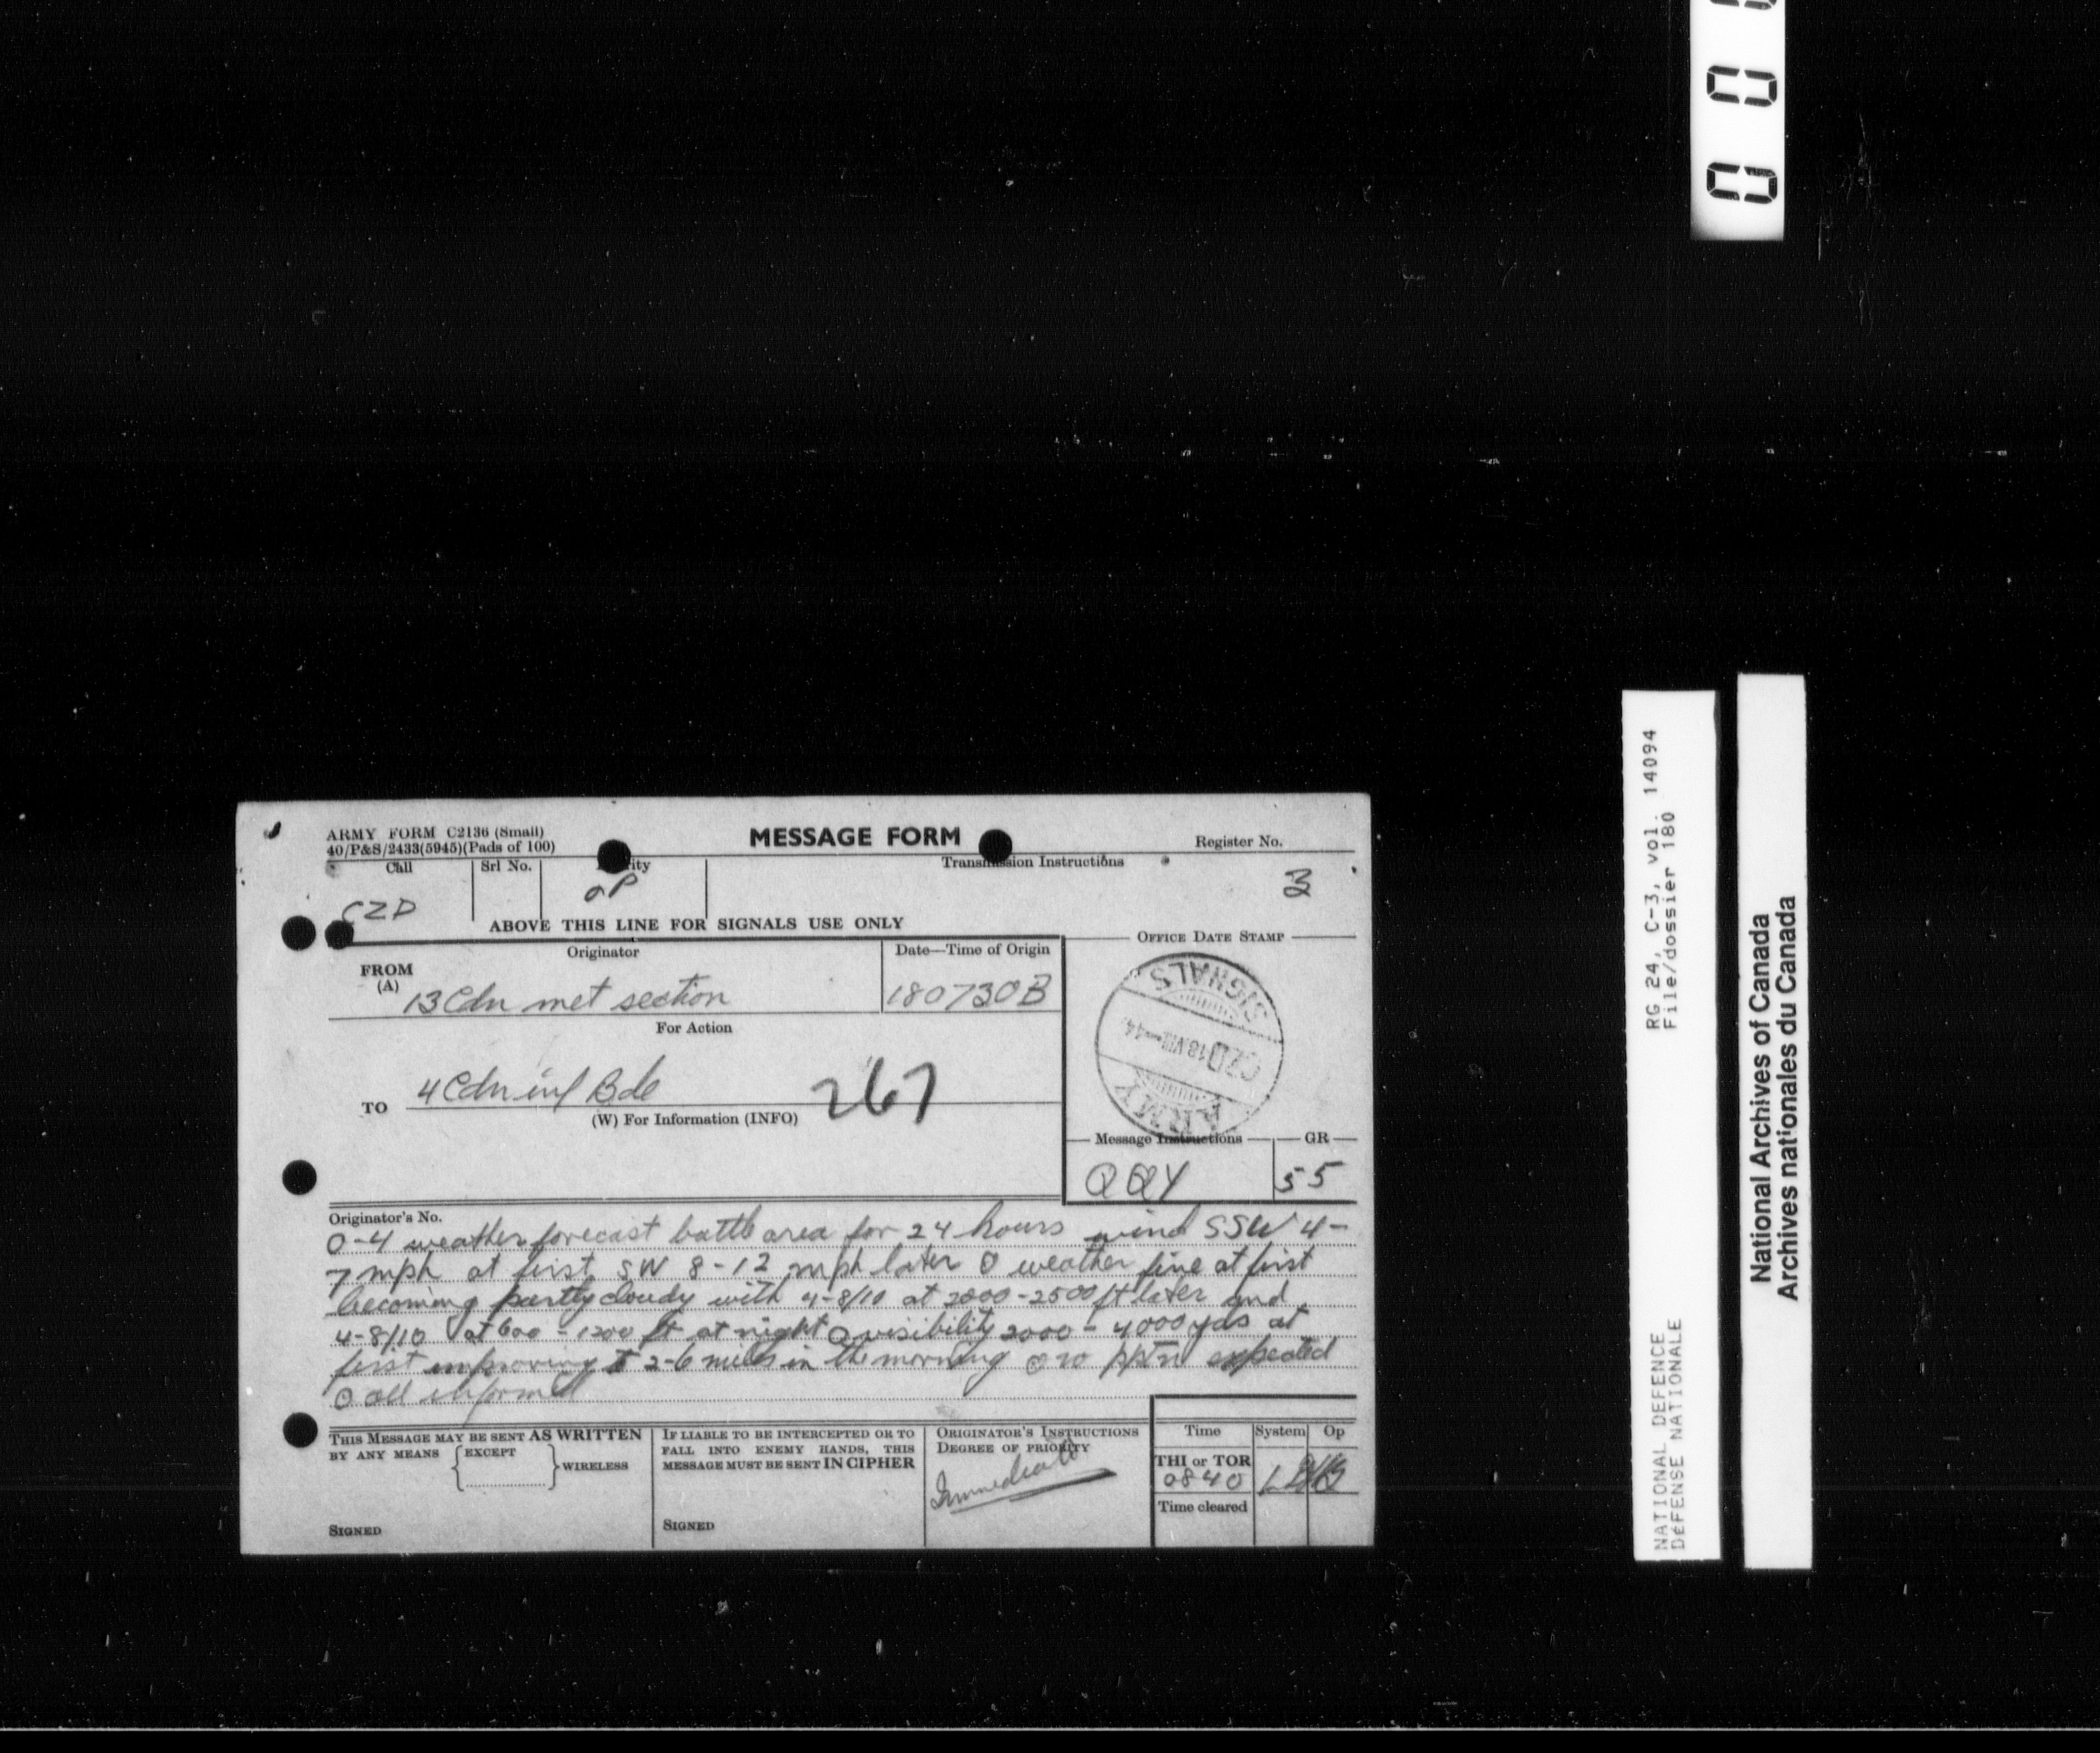 0 0 0
ARMY FORM C2136 (Small)
40/P&S/2433(5945)(Pads of 100)
MESSAGE FORM
Register No.
Call
Srl No.
Transmission Instructions
CZD
OP
3
ABOVE THIS LINE FOR SIGNALS USE ONLY
FROM
(A)
Originator
13 Cdn met section
Date—Time of Origin
180730B
OFFICE DATE STAMP
ARMY SIGNALS
CZD 18.VIII.—44
For Action
TO
4 Cdn inf Bde
267
(W) For Information (INFO)
Message Instructions
GR
QQY
55
Originator's No.
O-4 weather forecast battle area for 24 hours wind SSW 4-
7 mph at first SW 8-12 mph later O weather fine at first
becoming partly cloudy with 4-8/10 at 2000-2500 ft later and
4-8/10 at 600 - 1200 ft at night O visibility 2000 - 4000 yds at
first improving to 2-6 miles in the morning O no pptn expected
O all informed
THIS MESSAGE MAY BE SENT AS WRITTEN
BY ANY MEANS { EXCEPT } WIRELESS
SIGNED
IF LIABLE TO BE INTERCEPTED OR TO
FALL INTO ENEMY HANDS, THIS
MESSAGE MUST BE SENT IN CIPHER
SIGNED
ORIGINATOR'S INSTRUCTIONS
DEGREE OF PRIORITY
Immediate
Time
System
Op
THI or TOR
0840
Time cleared
RG 24, C-3, vol. 14094
File/dossier 180
NATIONAL DEFENCE
DÉFENSE NATIONALE
National Archives of Canada
Archives nationales du Canada